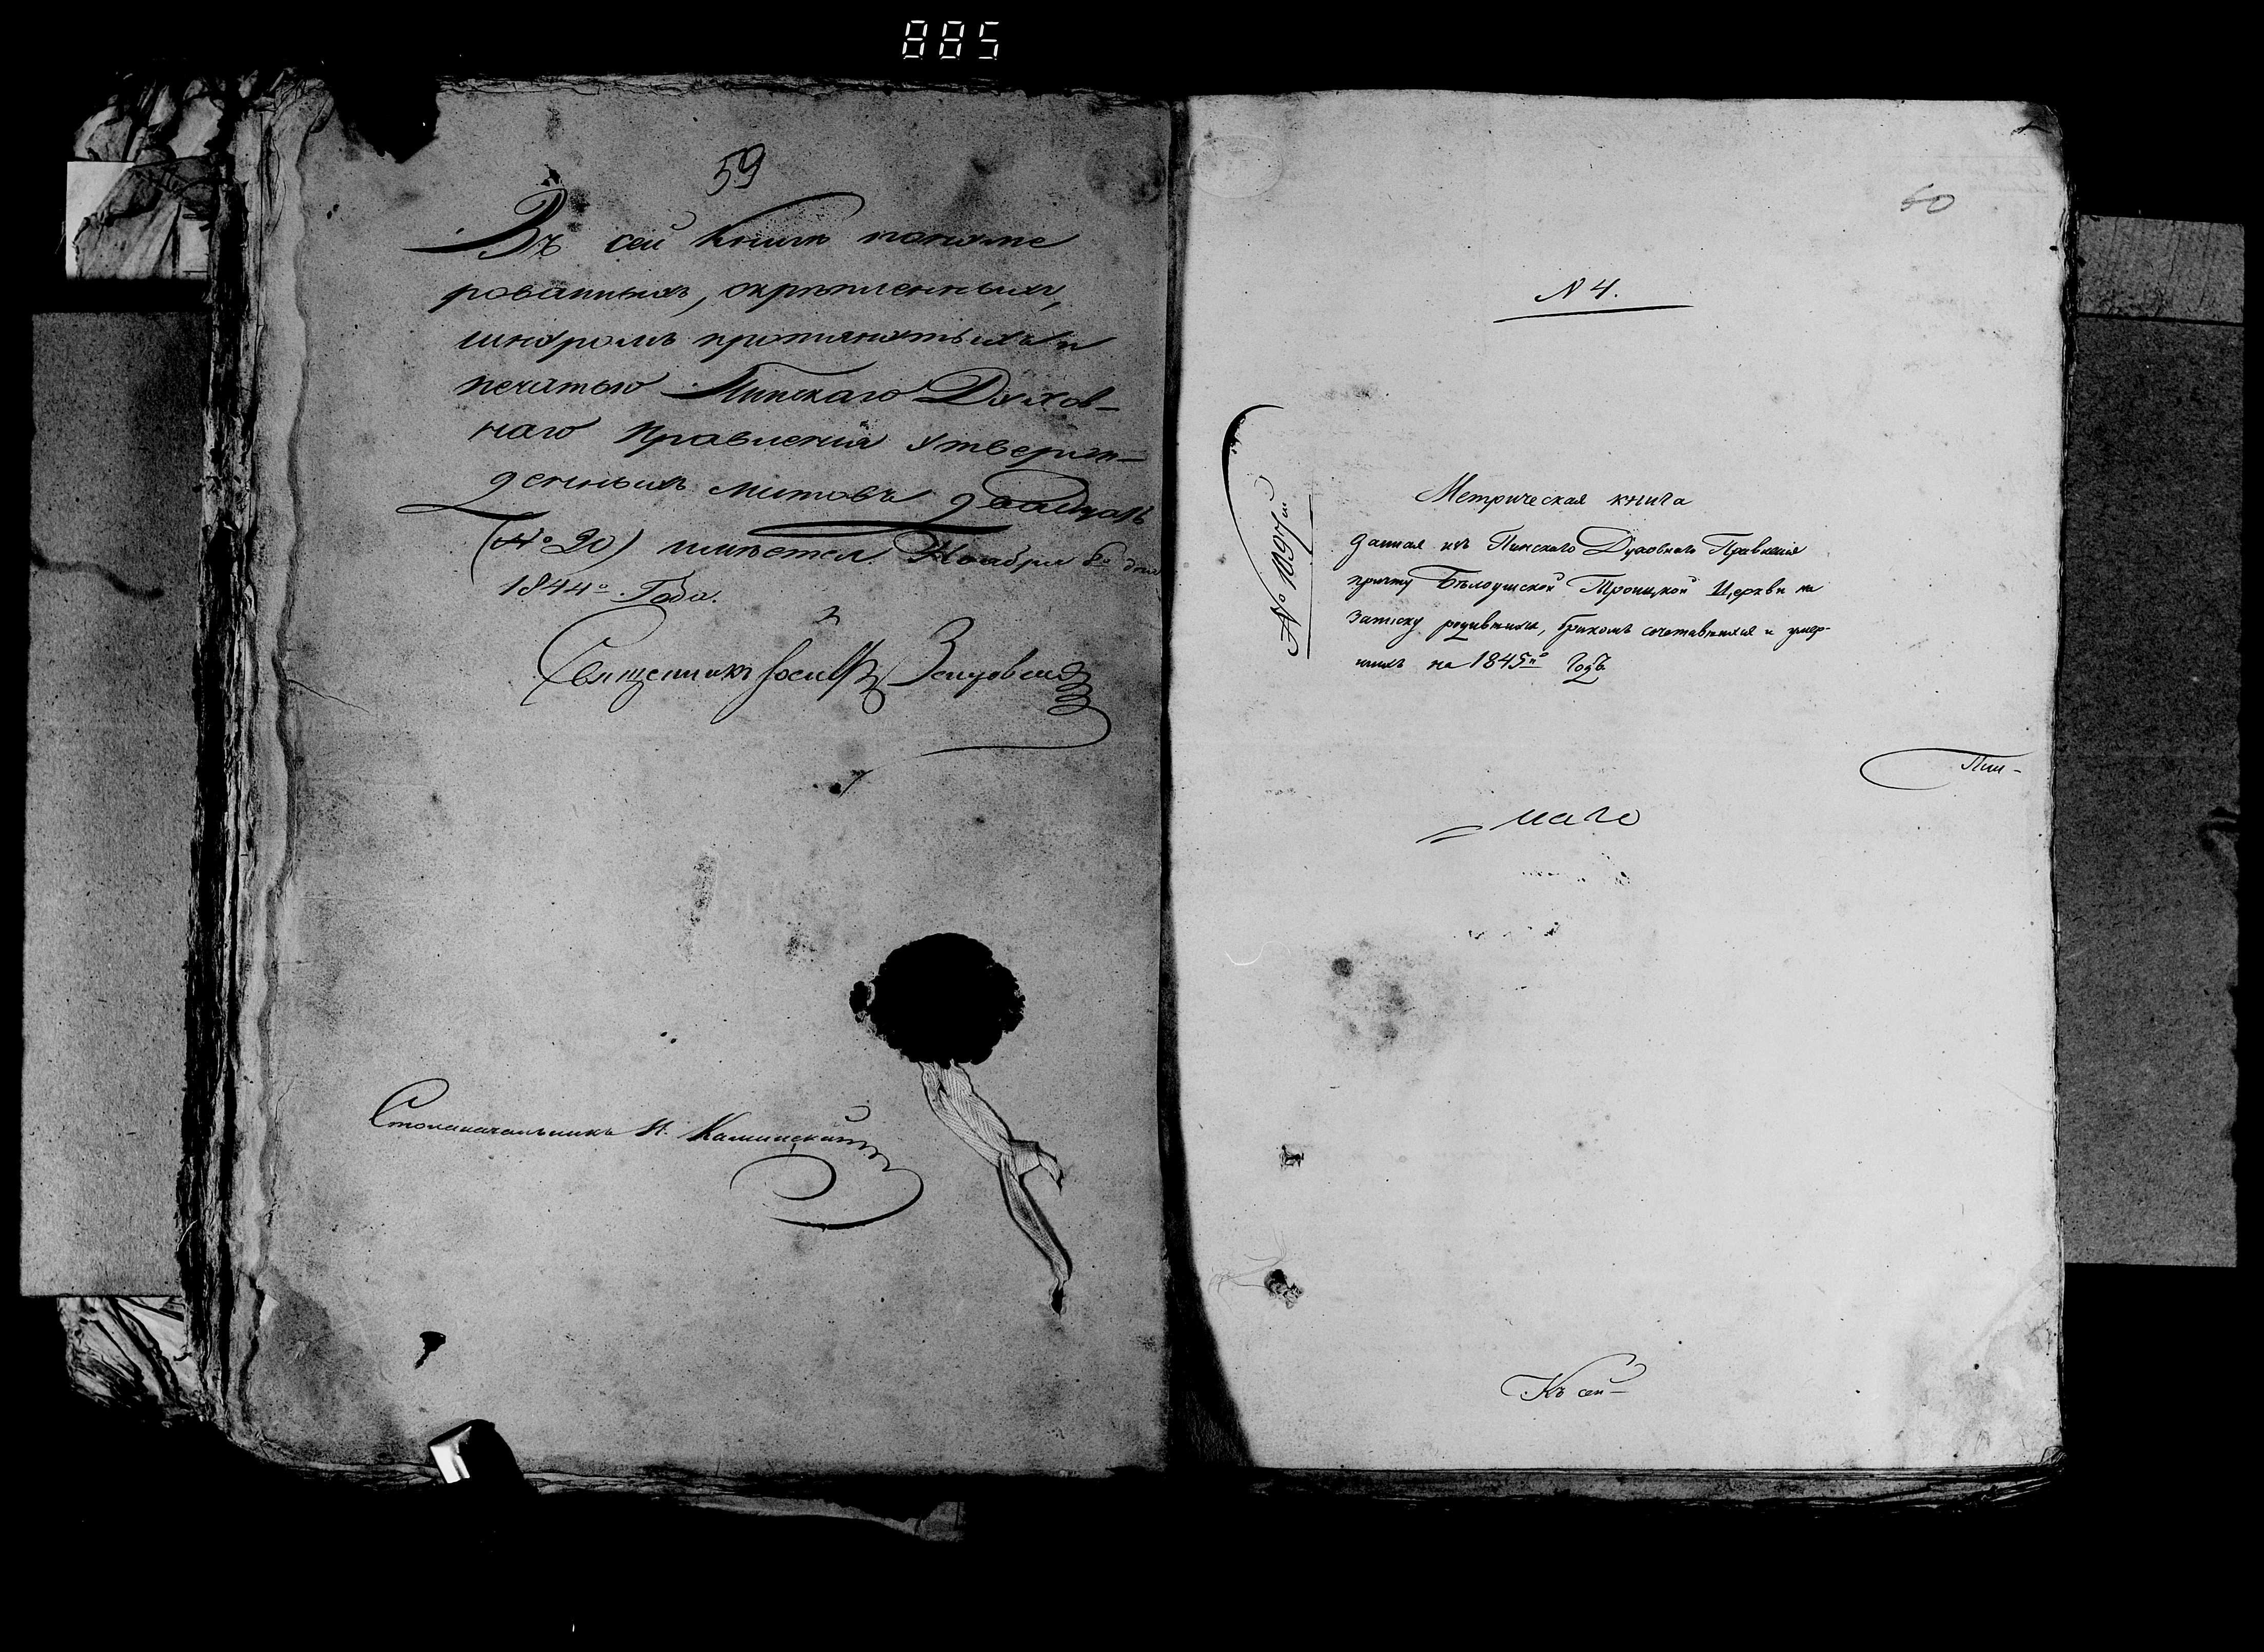 885
59
Въ сей книгѣ нонуме
рованныхъ, скрѣпленныхъ,
шнуромъ протянутыхъ и
печатью Пинскаго Духов-
наго Правленія утверж-
денныхъ листовъ двадцать
(№ 20) имѣется. Ноября 8го дня
1844го Года.
Священникъ Іосифъ
Столоначальникъ Н. Каминскій
60
N 4.
№ 1097й
Метрическая книга
данная изъ Пинскаго Духовнаго Правленія
причту Бѣлоушской Троицкой Церкви на
записку родившихся, бракомъ сочетавшихся и умер-
шихъ на 1845й Годъ
Пин-
скаго
Къ сей-